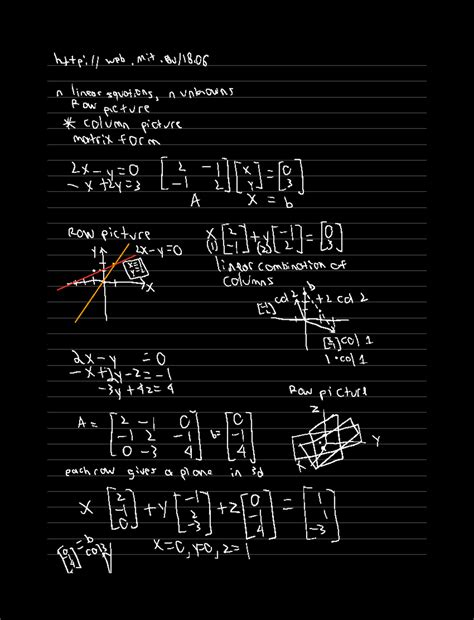 http://web.mit.eu/18.06
n linear equations, n unknowns
Row picture
* column picture
matrix form
2x-y=0 [2 -1; -1 2] [x; y] = [0; 3]
-x+2y=3
A x = b
Row picture x [2; -1] + y [-1; 2] = [0; 3]
(1) (2)
y 2x-y=0
x
linear combination of
columns
b
col 2 +2 col 2
col 1
1·col 1
2x-y =0
-x+2y-z=-1
-3y+4z=4
Row picture
A = [2 -1 0; -1 2 -1; 0 -3 4] b = [0; -1; 4]
z
y
x
each row gives a plane in 3d
x [2; -1; 0] + y [-1; 2; -3] + z [0; -1; 4] = [1; 1; -3]
[0; -1; 4] = b col 3 x=0, y=0, z=1